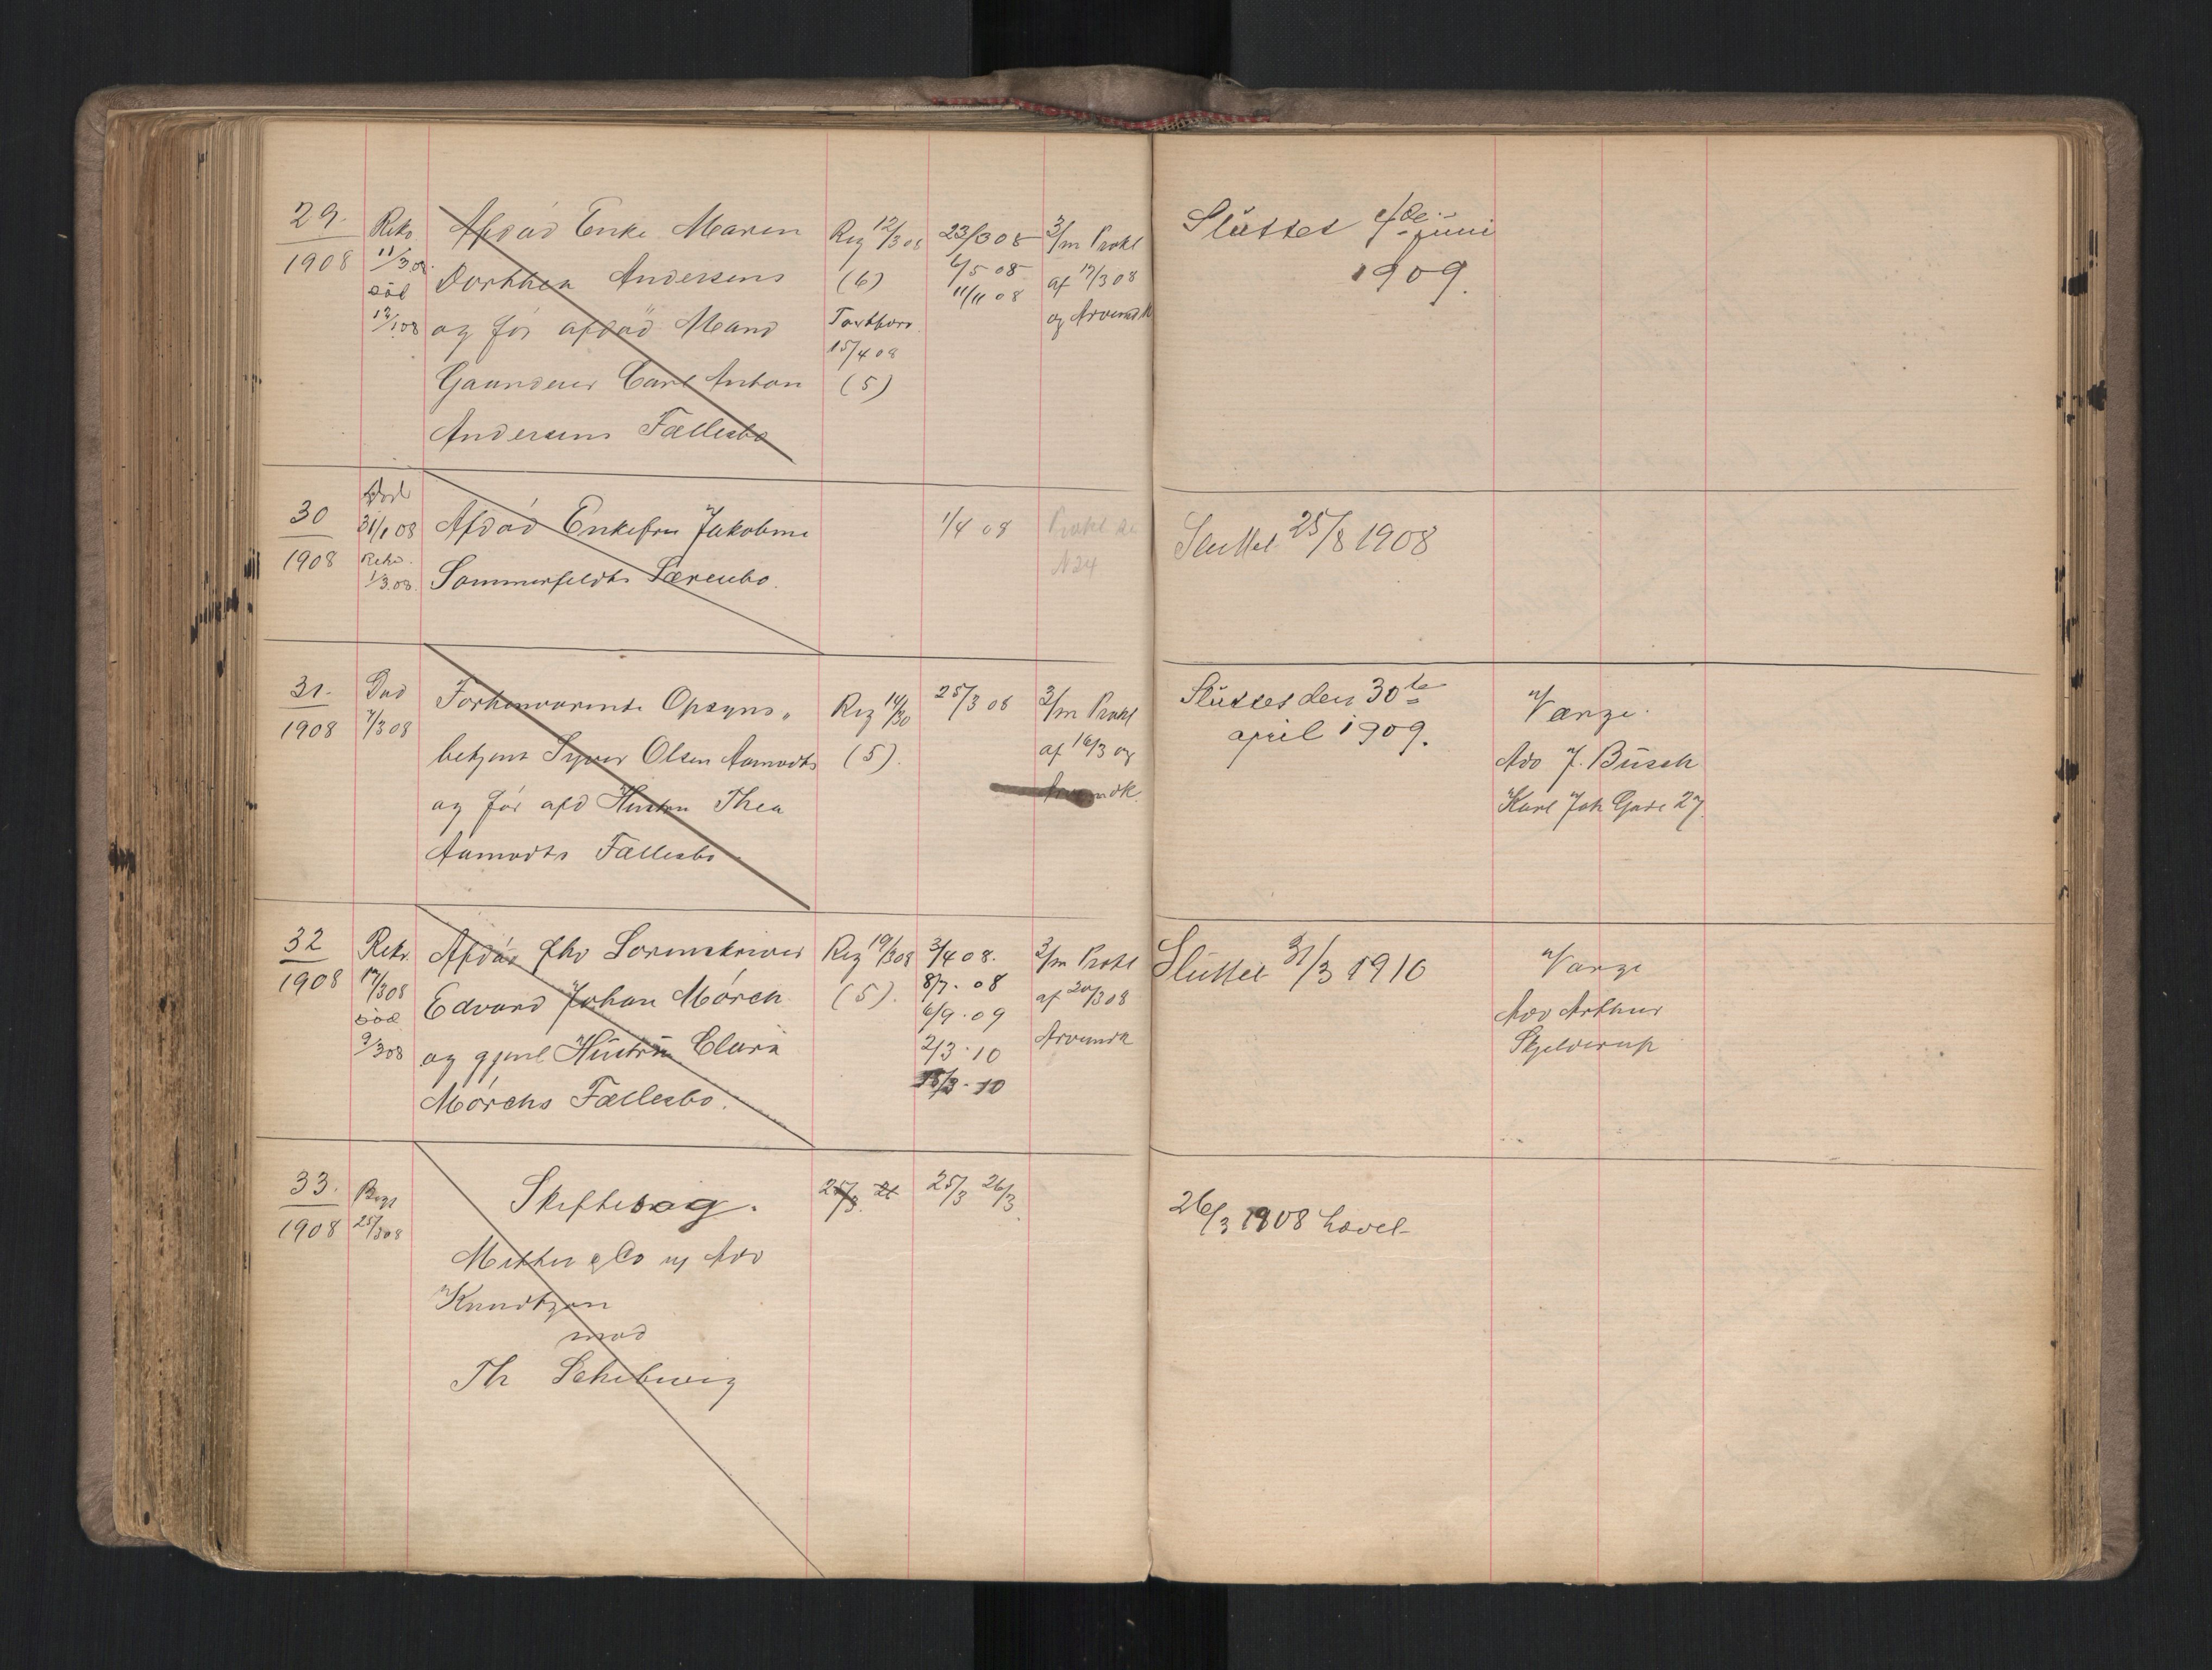 29.
1908
Rekv
11/3.08.
död
12/1.08
Afdöd Enke Maren
Dorthea Andersens
og før afdöd Mand
Gaardeier Carl Anton
Andersens Fællesbo
Reg 12/3 08
(6)
Taxtforr.
15/4 08
(5)
23/3 08
6/5 08
11/11 08
3/m Prokl
af 17/3 08
og Arvemdk
Sluttet 4de juni
1909.
30
1908
Död
31/1 08
Rekv.
1/3.08.
Afdöd Enkefru Jakobine
Sommerfeldts Særeubo.
1/4 08
Prokl
N 24
Sluttet 25/8 1908
31.
1908
Död
7/3 08
Forhenværende Opsyns„
betjent Syver Olsen Aamodts
og før afd Hustru Thea
Aamodts Fællesbo.
Reg 14/30
(5).
25/3 08
3/m Prokl
af 16/3 og
Arvemdk.
Sluttes den 30te
april 1909.
Værge.
Adv J. Busch
Karl Joh Gade 27.
32
1908
Rekv.
17/3 08
död
9/3 08
Afdöd fhv Sorenskriver
Edvard Johan Mörch
og gjenl Hustru Clara
Mörchs Fællesbo.
Reg 19/3 08
(5).
3/4 08.
8/7. 08
6/9. 09
2/3. 10
15/3. 10
3/m Prokl
af 20/3 08
Arvemdk
Sluttet 31/3 1910
Værge
Adv Arthur
Skjelderup
33.
1908
Begj
25/3 08
Skiftesag.
Mitthei & Co v/ Adv
Knudtzon
mod
Th Schibwig
25/3. 26
25/3 26/3
26/3 1908 hævet